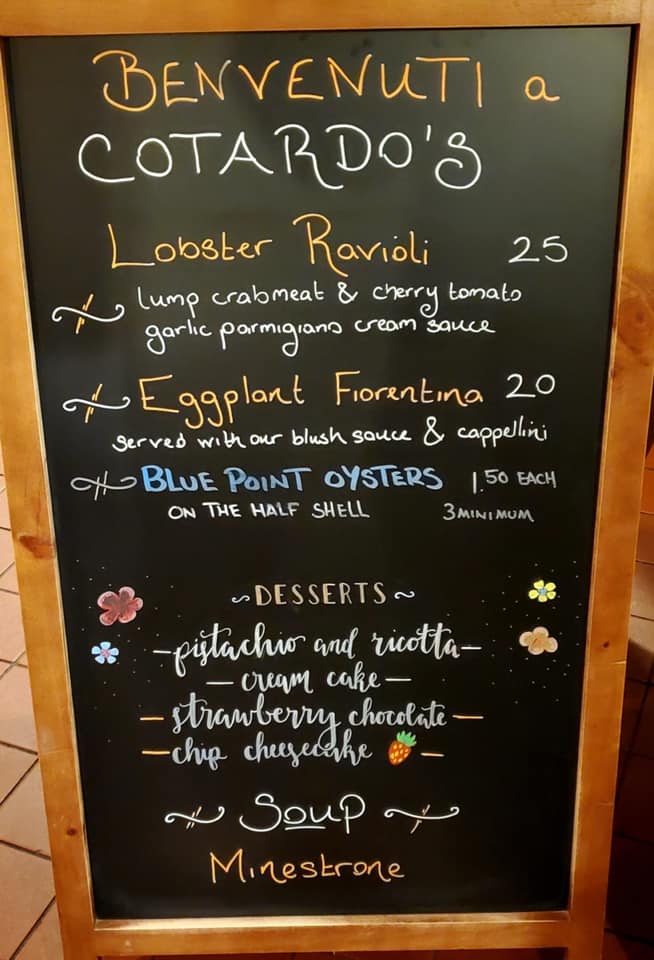 BENVENUTI a
COTARDO'S
Lobster Ravioli 25
lump crabmeat & cherry tomato
garlic parmigiano cream sauce
Eggplant Fiorentina 20
served with our blush sauce & cappellini
BLUE POINT OYSTERS 1.50 EACH
ON THE HALF SHELL 3 MINIMUM
~DESSERTS~
-pistachio and ricotta-
-cream cake-
-strawberry chocolate-
-chip cheesecake-
Soup
Minestrone